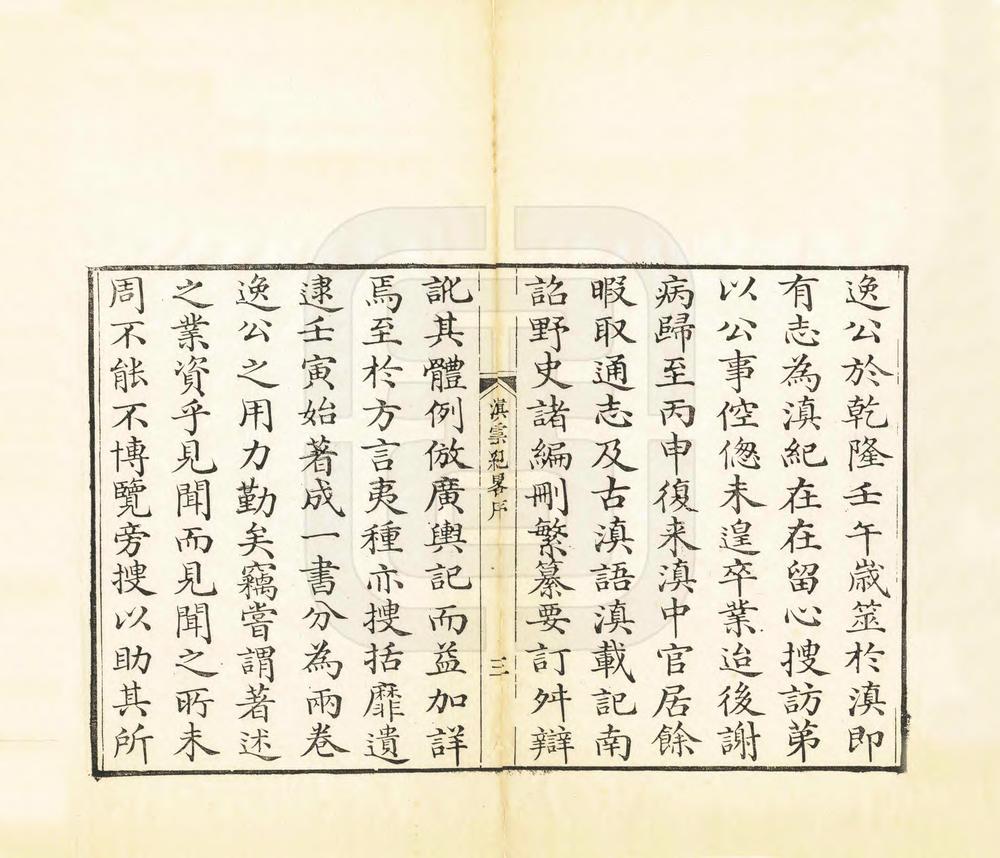 逸公於乾隆壬午歲筮於滇即
有志為滇紀在在留心搜訪第
以公事倥傯未遑卒業迨後謝
病歸至丙申復来滇中官居餘
暇取通志及古滇語滇載記南
詔野史諸編刪繁纂要訂舛辯
滇雲紀畧序
三
訛其體例倣廣輿記而益加詳
焉至於方言夷種亦搜括靡遺
逮壬寅始著成一書分為兩卷
逸公之用力勤矣竊嘗謂著述
之業資乎見聞而見聞之所未
周不能不博覽旁搜以助其所